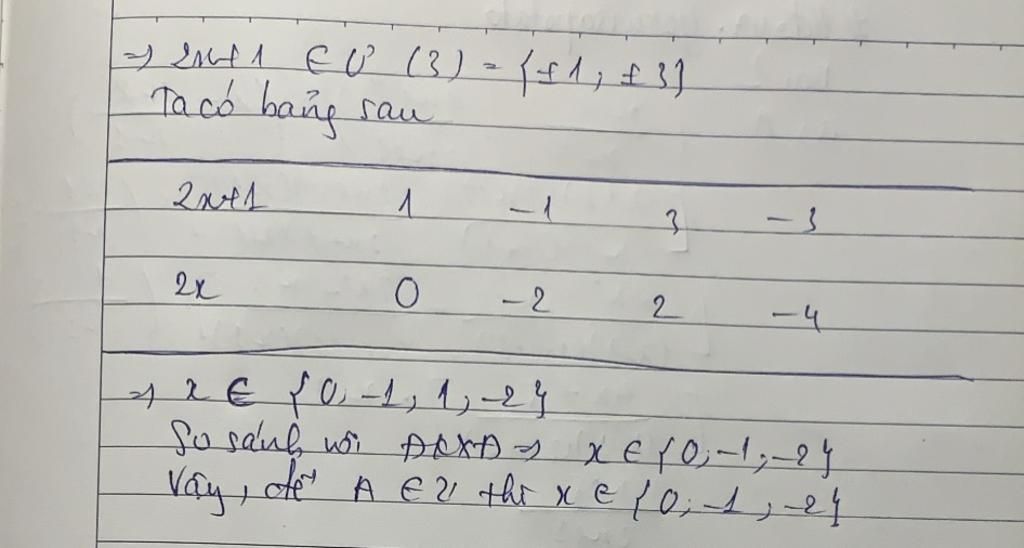 => 2x+1 ∈ Ư (3) = {±1; ±3}
Ta có bảng sau
2x+1 1 -1 3 -3
2x 0 -2 2 -4
=> x ∈ {0; -1; 1; -2}
So sánh với ĐKXĐ => x ∈ {0; -1; -2}
Vậy, để A ∈ Z thì x ∈ {0; -1; -2}